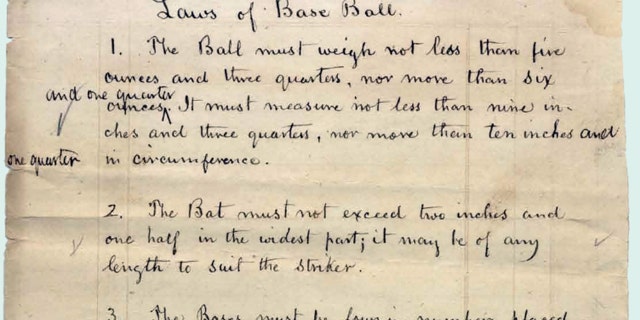 Laws of Base Ball.
1. The Ball must weigh not less than five
ounces and three quarters, nor more than six
and one quarter
ounces. It must measure not less than nine in-
ches and three quarters, nor more than ten inches and
one quarter in circumference.
2. The Bat must not exceed two inches and
one half in the widest part; it may be of any
length to suit the striker.
3. The Bases must be four in number, placed